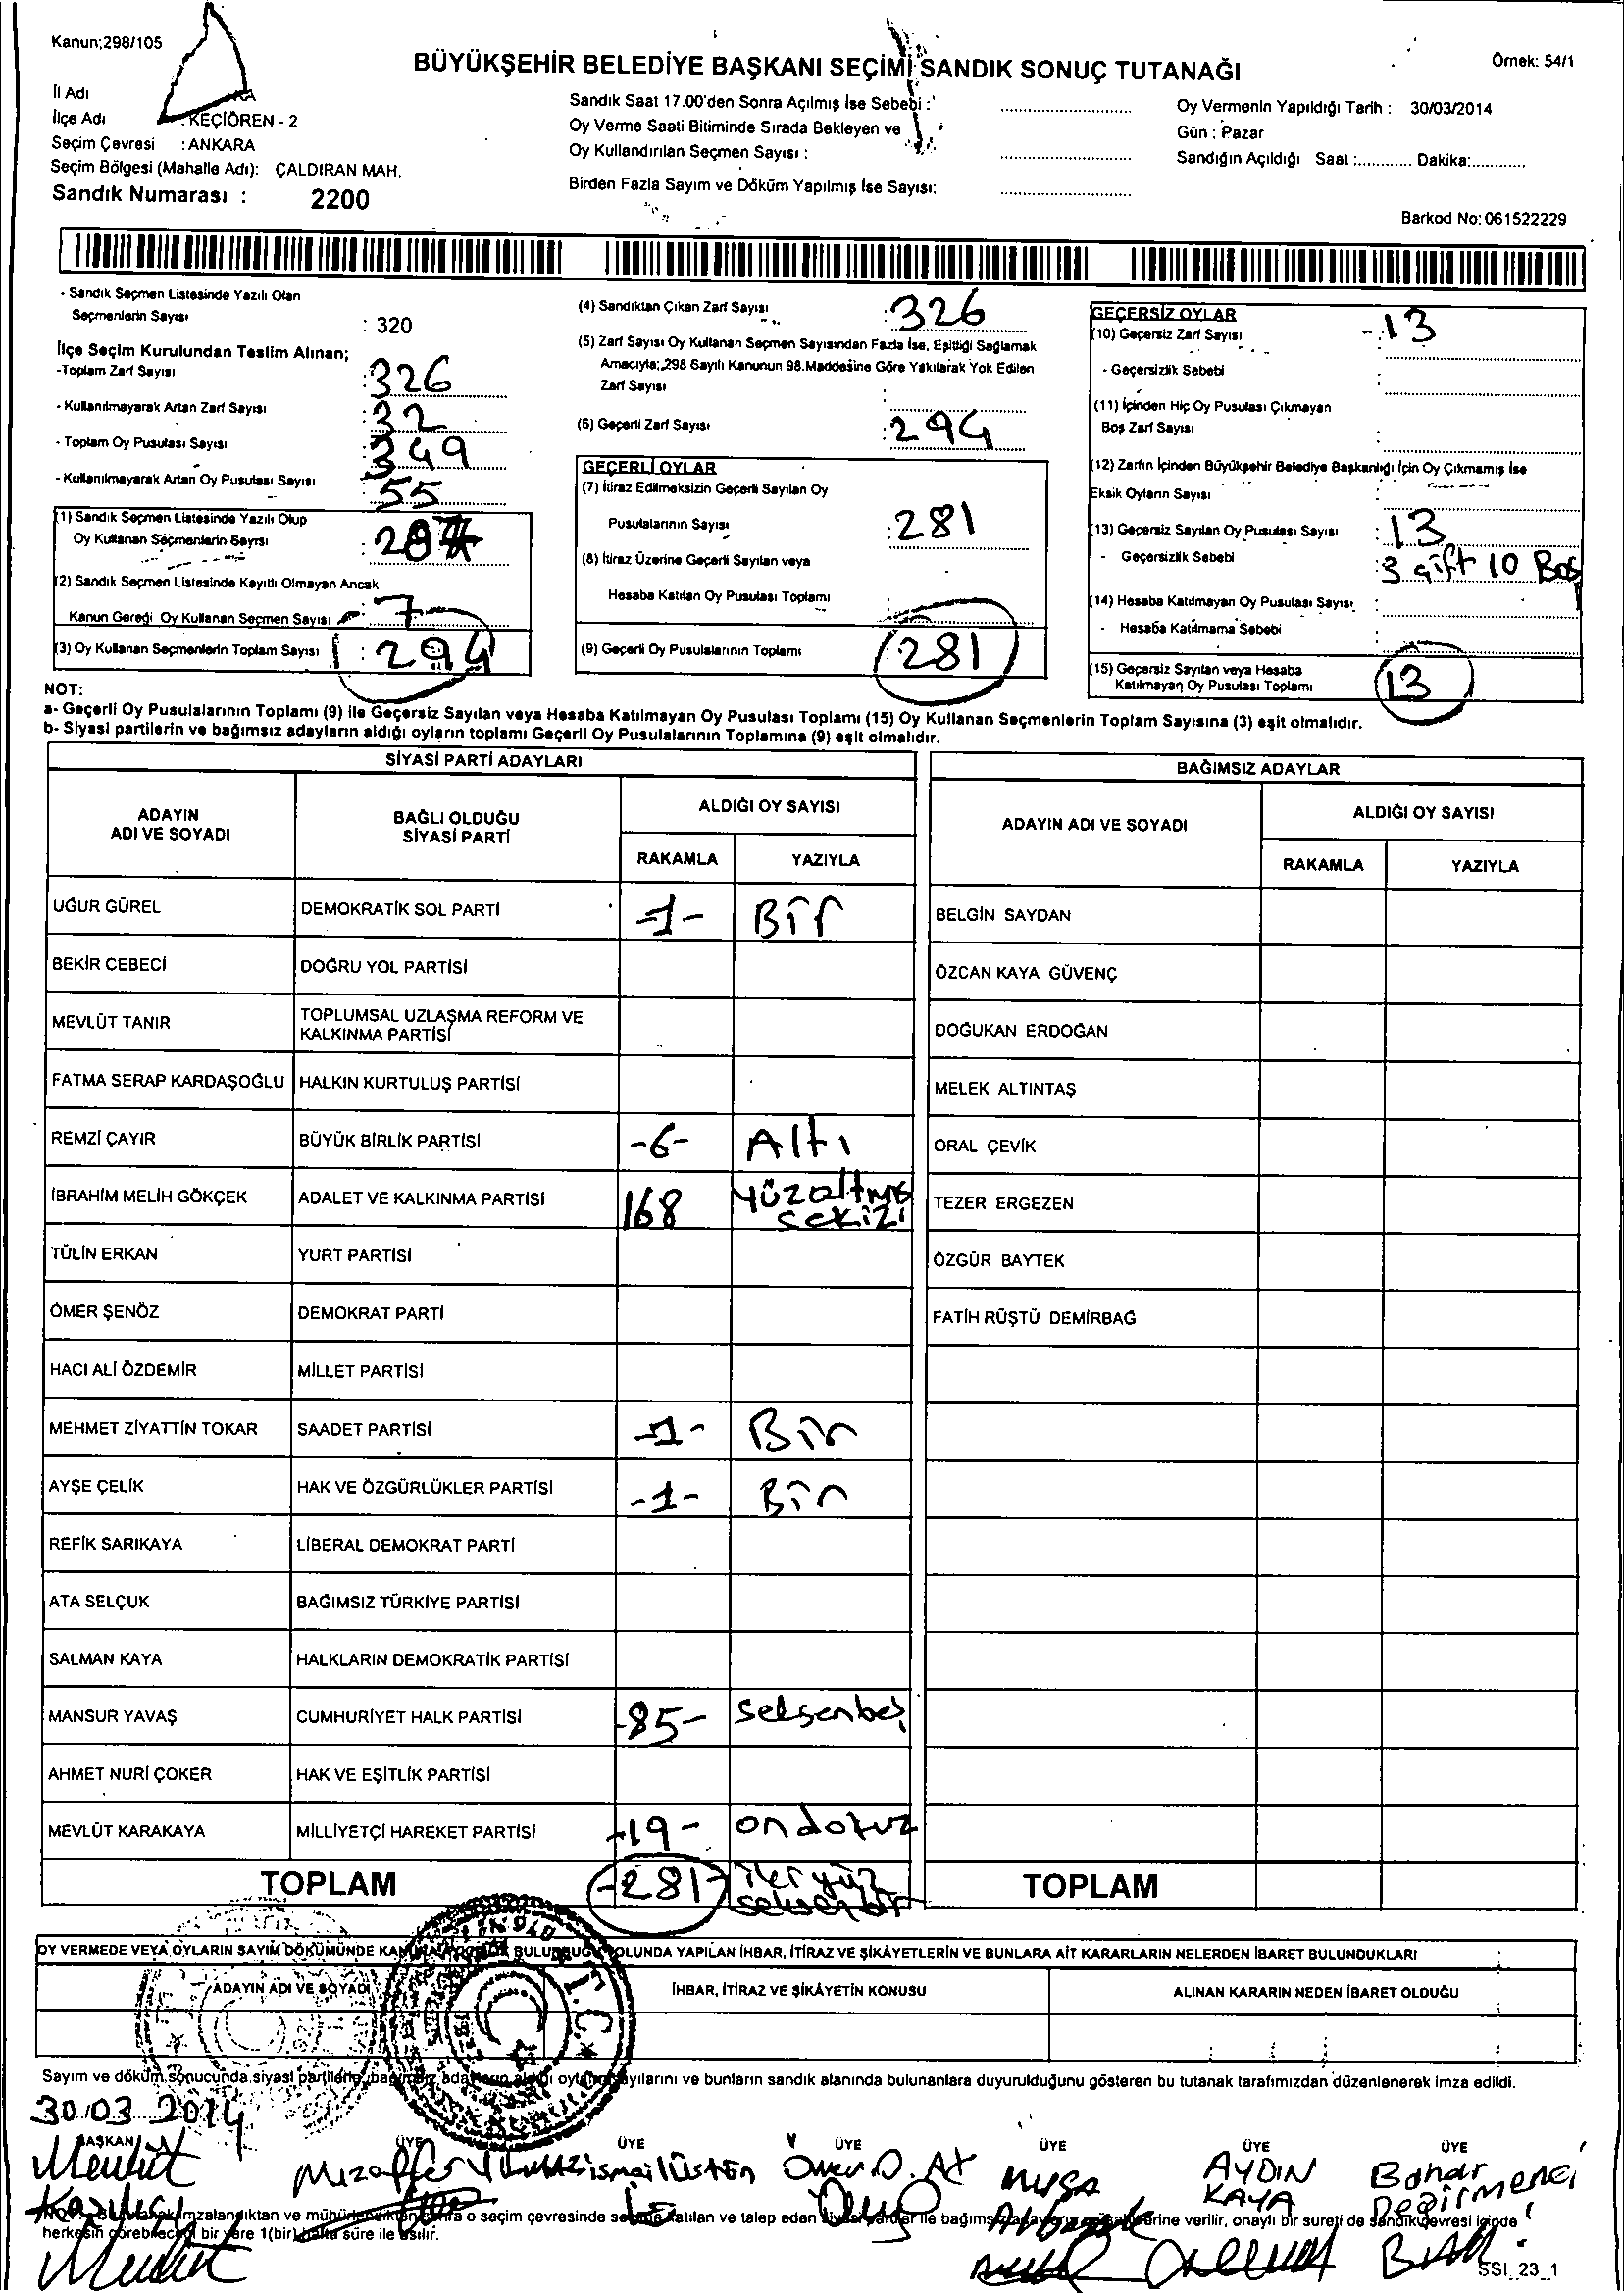 Kanun;298/105
BÜYÜKŞEHİR BELEDİYE BAŞKANI SEÇİMİ SANDIK SONUÇ TUTANAĞI
Örnek: 54/1
İl Adı
İlçe Adı : KEÇİÖREN - 2
Seçim Çevresi : ANKARA
Seçim Bölgesi (Mahalle Adı): ÇALDIRAN MAH.
Sandık Numarası : 2200
Sandık Saat 17.00'den Sonra Açılmış İse Sebebi :
Oy Verme Saati Bitiminde Sırada Bekleyen ve
Oy Kullandırılan Seçmen Sayısı :
Birden Fazla Sayım ve Döküm Yapılmış İse Sayısı:
Oy Vermenin Yapıldığı Tarih : 30/03/2014
Gün : Pazar
Sandığın Açıldığı Saat :............ Dakika:............
Barkod No: 061522229
- Sandık Seçmen Listesinde Yazılı Olan
Seçmenlerin Sayısı : 320
İlçe Seçim Kurulundan Teslim Alınan;
-Toplam Zarf Sayısı : 326
- Kullanılmayarak Artan Zarf Sayısı : 32
- Toplam Oy Pusulası Sayısı : 349
- Kullanılmayarak Artan Oy Pusulası Sayısı : 55
(1) Sandık Seçmen Listesinde Yazılı Olup
Oy Kullanan Seçmenlerin Sayısı :
(2) Sandık Seçmen Listesinde Kayıtlı Olmayan Ancak
Kanun Gereği Oy Kullanan Seçmen Sayısı : 7
(3) Oy Kullanan Seçmenlerin Toplam Sayısı : 294
(4) Sandıktan Çıkan Zarf Sayısı : 326
(5) Zarf Sayısı Oy Kullanan Seçmen Sayısından Fazla İse, Eşitliği Sağlamak
Amacıyla;,298 Sayılı Kanunun 98.Maddesine Göre Yakılarak Yok Edilen
Zarf Sayısı :
(6) Geçerli Zarf Sayısı : 294
GEÇERLİ OYLAR
(7) İtiraz Edilmeksizin Geçerli Sayılan Oy
Pusulalarının Sayısı : 281
(8) İtiraz Üzerine Geçerli Sayılan veya
Hesaba Katılan Oy Pusulası Toplamı :
(9) Geçerli Oy Pusulalarının Toplamı 281
GEÇERSİZ OYLAR
(10) Geçersiz Zarf Sayısı : 13
- Geçersizlik Sebebi :
(11) İçinden Hiç Oy Pusulası Çıkmayan
Boş Zarf Sayısı :
(12) Zarfın İçinden Büyükşehir Belediye Başkanlığı İçin Oy Çıkmamış İse
Eksik Oyların Sayısı :
(13) Geçersiz Sayılan Oy Pusulası Sayısı : 13
- Geçersizlik Sebebi : 3 çift 10 Boş
(14) Hesaba Katılmayan Oy Pusulası Sayısı :
- Hesaba Katılmama Sebebi :
(15) Geçersiz Sayılan veya Hesaba
Katılmayan Oy Pusulası Toplamı 13
NOT:
a- Geçerli Oy Pusulalarının Toplamı (9) ile Geçersiz Sayılan veya Hesaba Katılmayan Oy Pusulası Toplamı (15) Oy Kullanan Seçmenlerin Toplam Sayısına (3) eşit olmalıdır.
b- Siyasi partilerin ve bağımsız adayların aldığı oyların toplamı Geçerli Oy Pusulalarının Toplamına (9) eşit olmalıdır.
SİYASİ PARTİ ADAYLARI
ADAYIN ADI VE SOYADI
BAĞLI OLDUĞU SİYASİ PARTİ
ALDIĞI OY SAYISI
RAKAMLA YAZIYLA
UĞUR GÜREL DEMOKRATİK SOL PARTİ -1- Bir
BEKİR CEBECİ DOĞRU YOL PARTİSİ
MEVLÜT TANIR TOPLUMSAL UZLAŞMA REFORM VE KALKINMA PARTİSİ
FATMA SERAP KARDAŞOĞLU HALKIN KURTULUŞ PARTİSİ
REMZİ ÇAYIR BÜYÜK BİRLİK PARTİSİ -6- Altı
İBRAHİM MELİH GÖKÇEK ADALET VE KALKINMA PARTİSİ 168 yüzaltmış sekizi
TÜLİN ERKAN YURT PARTİSİ
ÖMER ŞENÖZ DEMOKRAT PARTİ
HACI ALİ ÖZDEMİR MİLLET PARTİSİ
MEHMET ZİYATTİN TOKAR SAADET PARTİSİ -1- Bir
AYŞE ÇELİK HAK VE ÖZGÜRLÜKLER PARTİSİ -1- Bir
REFİK SARIKAYA LİBERAL DEMOKRAT PARTİ
ATA SELÇUK BAĞIMSIZ TÜRKİYE PARTİSİ
SALMAN KAYA HALKLARIN DEMOKRATİK PARTİSİ
MANSUR YAVAŞ CUMHURİYET HALK PARTİSİ -85- seksenbeş
AHMET NURİ ÇOKER HAK VE EŞİTLİK PARTİSİ
MEVLÜT KARAKAYA MİLLİYETÇİ HAREKET PARTİSİ -19- ondokuz
TOPLAM -281- ikiyüz seksenbir
BAĞIMSIZ ADAYLAR
ADAYIN ADI VE SOYADI
ALDIĞI OY SAYISI
RAKAMLA YAZIYLA
BELGİN SAYDAN
ÖZCAN KAYA GÜVENÇ
DOĞUKAN ERDOĞAN
MELEK ALTINTAŞ
ORAL ÇEVİK
TEZER ERGEZEN
ÖZGÜR BAYTEK
FATİH RÜŞTÜ DEMİRBAĞ
TOPLAM
OY VERMEDE VEYA OYLARIN SAYIM DÖKÜMÜNDE YOLUNDA YAPILAN İHBAR, İTİRAZ VE ŞİKÂYETLERİN VE BUNLARA AİT KARARLARIN NELERDEN İBARET BULUNDUKLARI
ADAYIN ADI VE SOYADI
İHBAR, İTİRAZ VE ŞİKÂYETİN KONUSU
ALINAN KARARIN NEDEN İBARET OLDUĞU
T.C.
Sayım ve döküm sonucunda siyasi partilerin, bağımsız adayların aldığı oyların sayılarını ve bunların sandık alanında bulunanlara duyurulduğunu gösteren bu tutanak tarafımızdan düzenlenerek imza edildi.
30.03.2014
BAŞKAN ÜYE ÜYE ÜYE ÜYE ÜYE ÜYE
Mevlüt
Muzaffer Yılmaz
İsmail Üstün
Ömer D.
Musa
AYDIN KAYA
Bahar Değirmenci
imzalandıktan ve mühürlendikten sonra o seçim çevresinde seçime katılan ve talep eden siyasi partiler ile bağımsız verilir, onaylı bir sureti de sandık çevresi içinde
herkesin görebileceği bir yere 1(bir) hafta süre ile asılır.
SSI_23_1